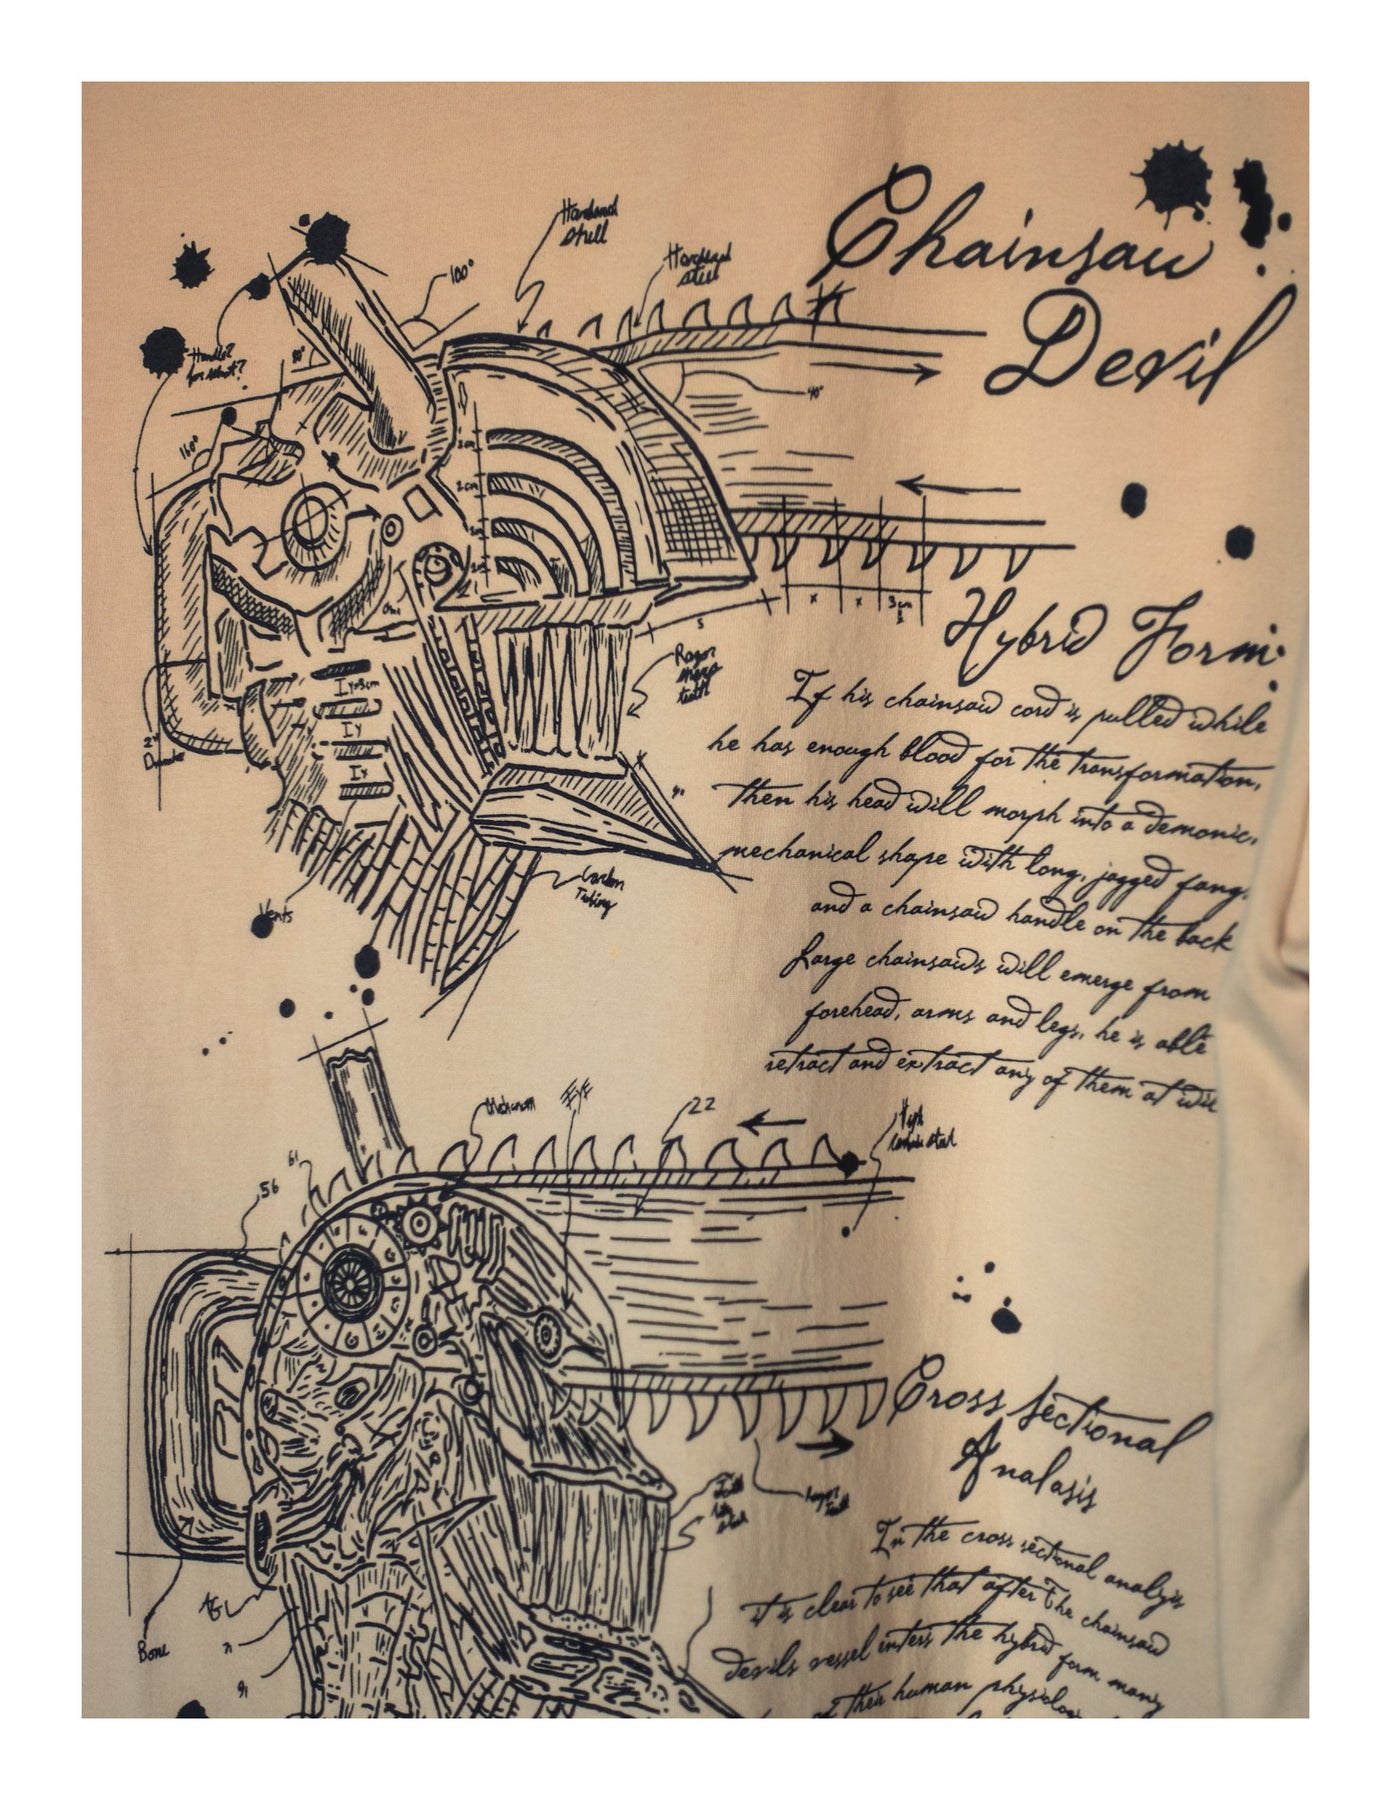 Chainsaw
Devil
Hardened
shell
Hardened
steel
100°
Handle?
for what?
80°
160°
40°
2cm
x x 3cm
5
Razor
sharp
teeth
Iy=3cm
Iy
Ix
Vents
Carbon
Tubing
Hybrid Form:
If his chainsaw cord is pulled while
he has enough blood for the transformation,
then his head will morph into a demonic,
mechanical shape with long, jagged fangs
and a chainsaw handle on the back
Large chainsaws will emerge from
forehead, arms and legs, he is able
retract and extract any of them at will
EYE
22
High
steel
61
56
Cross sectional
Analasis
In the cross sectional analysis
it is clear to see that after the chainsaw
devils vessel inters the hybrid form many
of their human physiolo
Bone